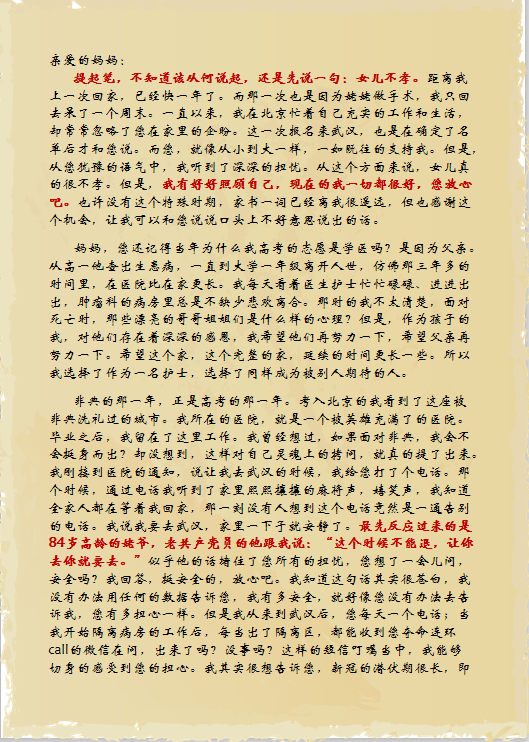 亲爱的妈妈：
提起笔，不知道该从何说起，还是先说一句：女儿不孝。距离我
上一次回家，已经快一年了。而那一次也是因为姥姥做手术，我只回
去呆了一个周末。一直以来，我在北京忙着自己充实的工作和生活，
却常常忽略了您在家里的企盼。这一次报名来武汉，也是在确定了名
单后才和您说。而您，就像从小到大一样，一如既往的支持我。但是，
从您犹豫的语气中，我听到了深深的担忧。从这个方面来说，女儿真
的很不孝。但是，我有好好照顾自己，现在的我一切都很好，您放心
吧。也许没有这个特殊时期，家书一词已经离我很遥远，但也感谢这
个机会，让我可以和您说说口头上不好意思说出的话。
妈妈，您还记得当年为什么我高考的志愿是学医吗？是因为父亲。
从高一他查出生恶病，一直到大学一年级离开人世，仿佛那三年多的
时间里，在医院比在家更长。我每天看着医生护士忙忙碌碌、进进出
出，肿瘤科的病房里总是不缺少悲欢离合。那时的我不太清楚，面对
死亡时，那些漂亮的哥哥姐姐们是什么样的心理？但是，作为孩子的
我，对他们存在着深深的感恩，我希望他们再努力一下，希望父亲再
努力一下。希望这个家，这个完整的家，延续的时间更长一些。所以
我选择了作为一名护士，选择了同样成为被别人期待的人。
非典的那一年，正是高考的那一年。考入北京的我看到了这座被
非典洗礼过的城市。我所在的医院，就是一个被英雄充满了的医院。
毕业之后，我留在了这里工作。我曾经想过，如果面对非典，我会不
会挺身而出？却没想到，这样对自己灵魂上的拷问，就真的提了出来。
我刚接到医院的通知，说让我去武汉的时候，我给您打了个电话。那
个时候，通过电话我听到了家里熙熙攘攘的麻将声，嬉笑声，我知道
全家人都在等着我回家，那一刻没有人想到这个电话竟然是一通告别
的电话。我说我要去武汉，家里一下子就安静了。最先反应过来的是
84岁高龄的姥爷，老共产党员的他跟我说：“这个时候不能退，让你
去你就要去。”似乎他的话堵住了您所有的担忧，您想了一会儿问，
安全吗？我回答，挺安全的，放心吧。我知道这句话其实很苍白，我
没有办法用任何的数据告诉您，我有多安全，就好像您没有办法去告
诉我，您有多担心一样。但是我从来到武汉后，您每天一个电话；当
我开始隔离病房的工作后，每当出了隔离区，都能收到您夺命连环
call的微信在问，出来了吗？没事吗？这样的短信叮嘱当中，我能够
切身的感受到您的担心。我其实很想告诉您，新冠的潜伏期很长，即